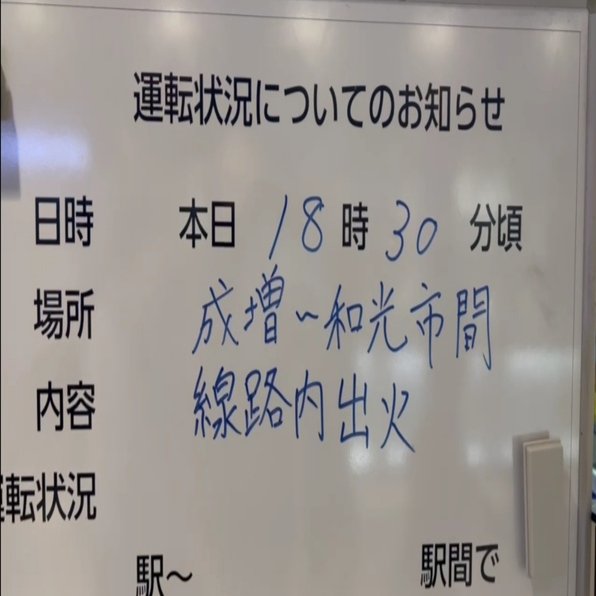 運転状況についてのお知らせ
日時 本日 18 時 30 分頃
場所 成増~和光市間
内容 線路内出火
運転状況
駅~ 駅間で